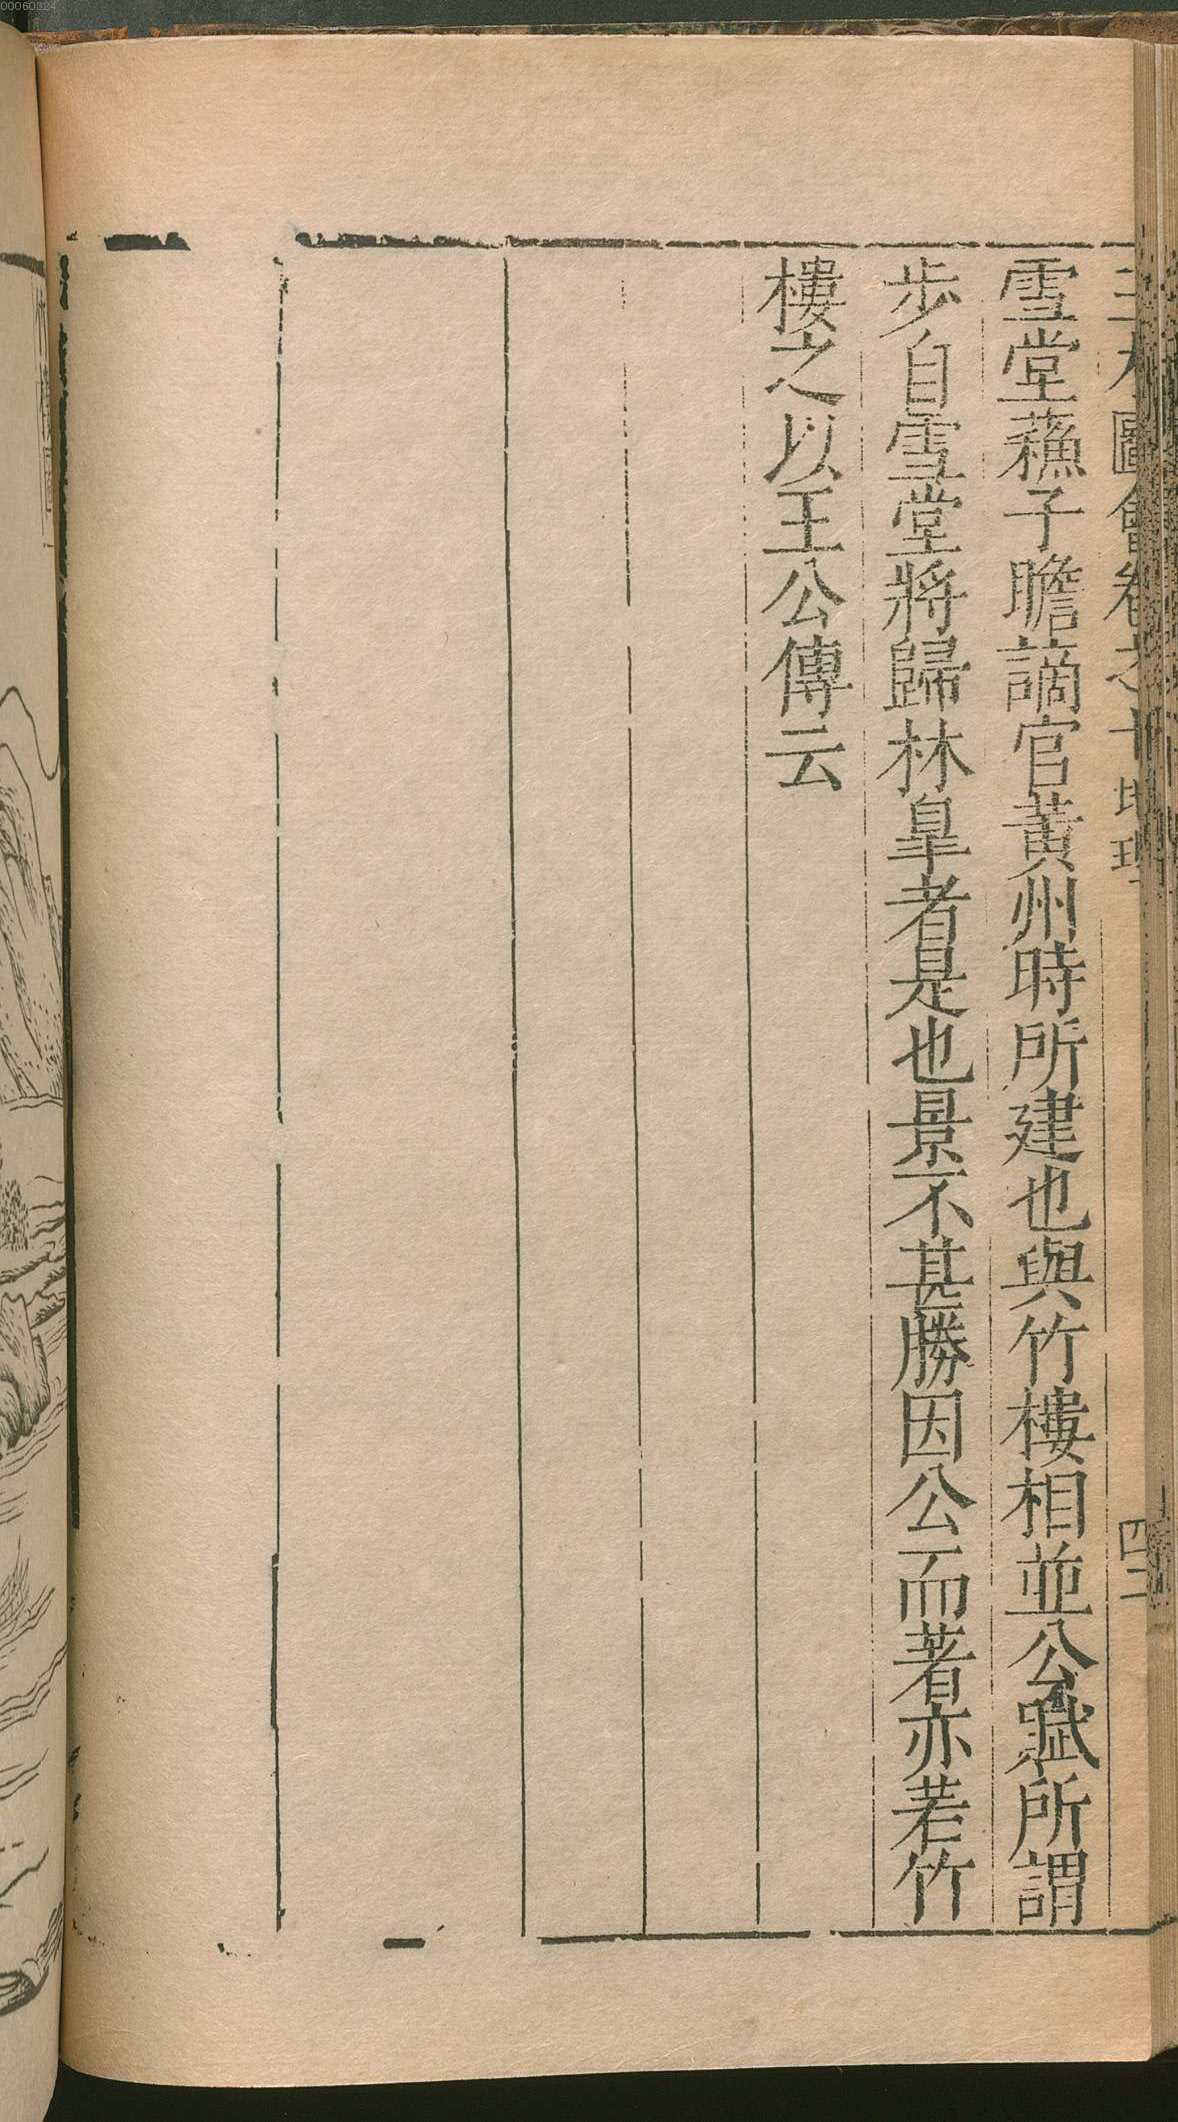 三才圖會卷之十 地理 四二
雪堂蘓子瞻謫官黃州時所建也與竹樓相並公賦所謂
步自雪堂將歸林皐者是也景不甚勝因公而著亦若竹
樓之以王公傳云
00060324